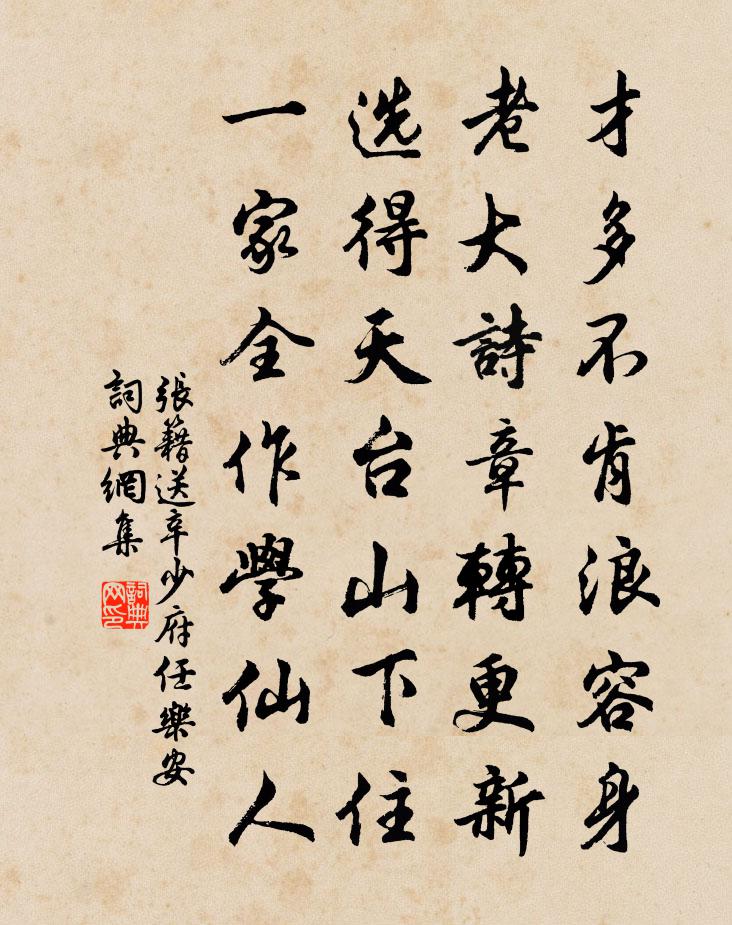 才多不肯浪容身
老大詩章轉更新
选得天台山下住
一家全作學仙人
張籍送辛少府任樂安
詞典網集
詞典
网印